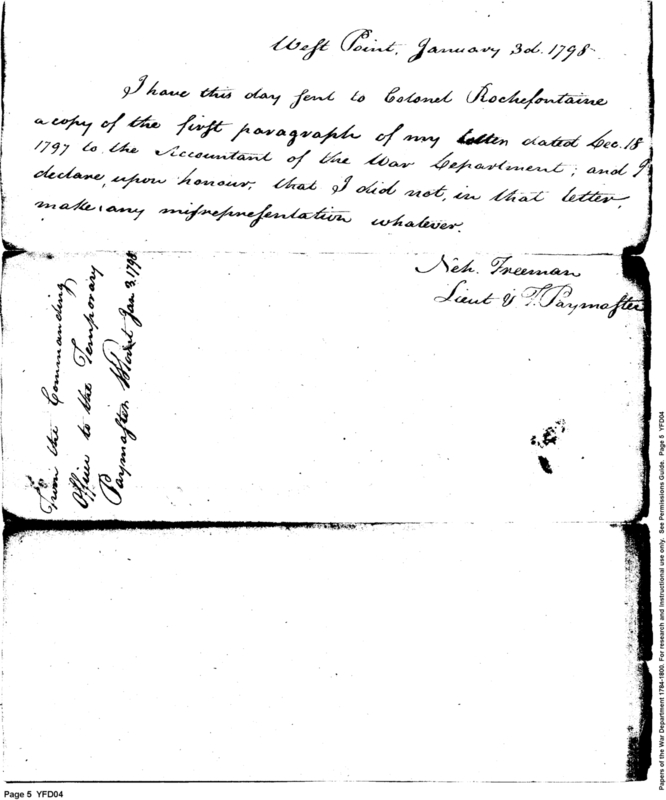 West Point, January 3d. 1798.
I have this day sent to Colonel Rochefontaine
a copy of the first paragraph of my letter dated Dec. 18
1797 to the Accountant of the War Department; and I
declare, upon honour, that I did not, in that letter,
make any misrepresentation whatever.
Neh. Freeman
Lieut & T. Paymaster
From the Commanding
Officer to the Temporary
Paymaster W Point Jan 3. 1798
Page 5 YFD04
Papers of the War Department 1784-1800. For research and instructional use only. See Permissions Guide. Page 5 YFD04